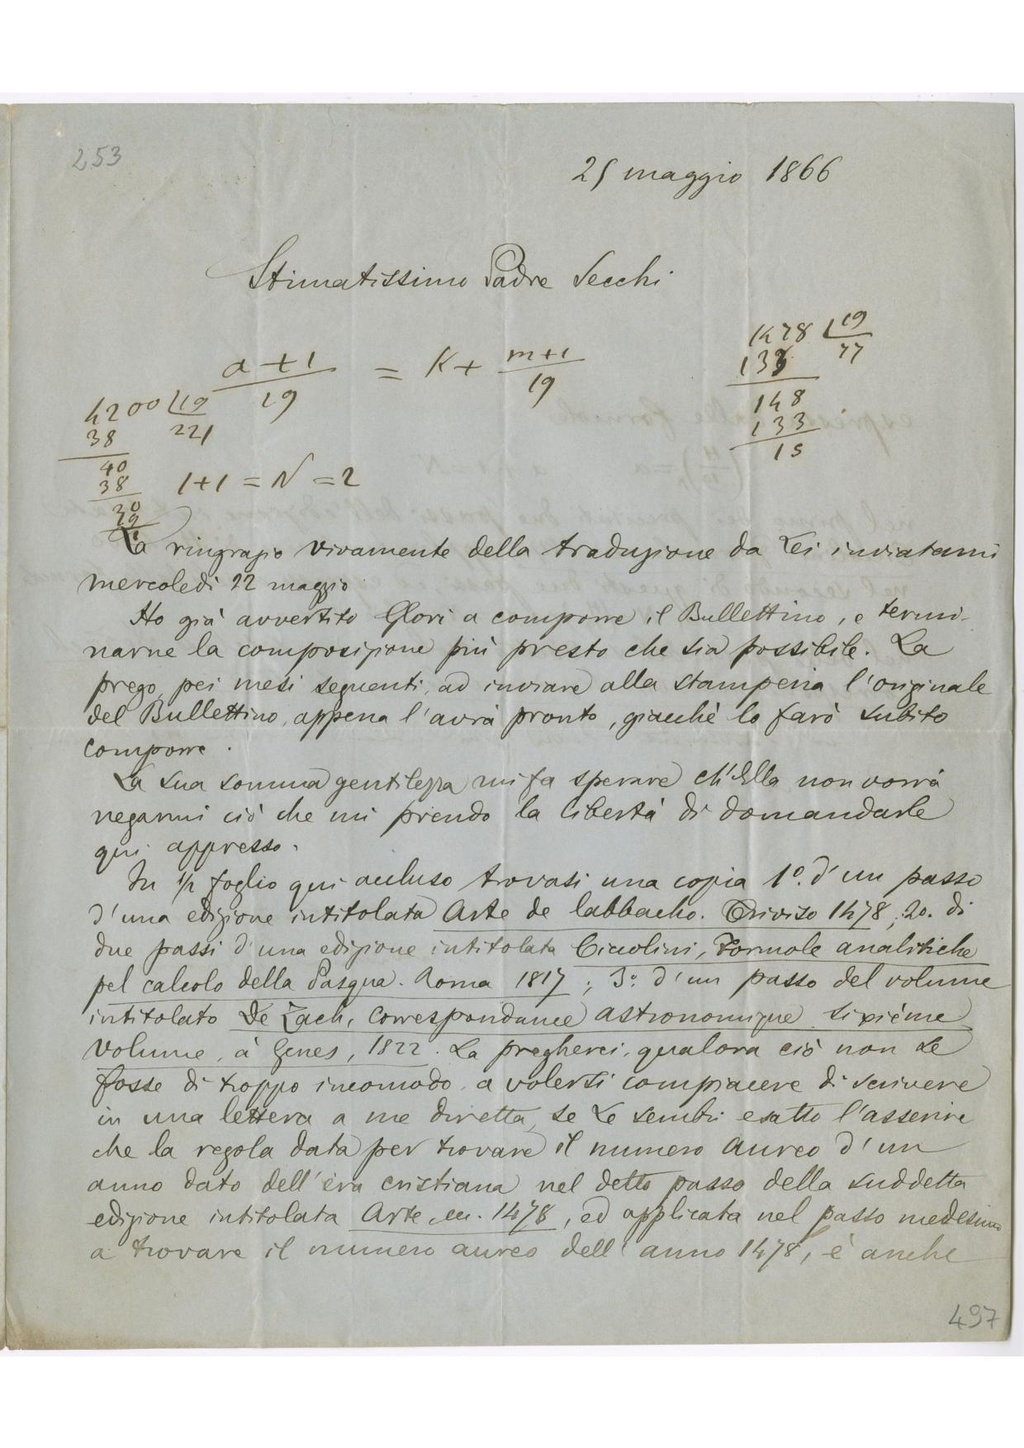 253
25 maggio 1866
Stimatissimo Padre Secchi
a+1 / 19 = K + m+1 / 19
1478 | 19
133 77
148
133
15
4200 | 19
38 221
40
38
20
19
1+1 = N = 2
La ringrazio vivamente della traduzione da Lei inviatami
mercoledì 22 maggio
Ho già avvertito Glori a comporre il Bullettino, e termi-
narne la composizione più presto che sia possibile. La
prego, pei mesi seguenti, ad inviare alla stamperia l'originale
del Bullettino, appena l'avrà pronto, giacchè lo farò subito
comporre.
La sua somma gentilezza mi fa sperare ch'Ella non vorrà
negarmi ciò che mi prendo la libertà di domandarle
qui appresso.
In 1/2 foglio qui accluso trovasi una copia 1º. d'un passo
d'una edizione intitolata Arte de labbacho. Triviso 1478, 2º. di
due passi d'una edizione intitolata Ciccolini, Formole analitiche
pel calcolo della Pasqua. Roma 1817; 3º. d'un passo del volume
intitolato De Zach, Correspondance astronomique sixiéme
volume, à Gênes, 1822. La pregherei, qualora ciò non Le
fosse di troppo incomodo, a volersi compiacere di scrivere
in una lettera a me diretta, se Le sembri esatto l'asserire
che la regola data per trovare il numero aureo d'un
anno dato dell'èra cristiana nel detto passo della suddetta
edizione intitolata Arte, ecc. 1478, ed applicata nel passo medesimo
a trovare il numero aureo dell'anno 1478, è anche
497